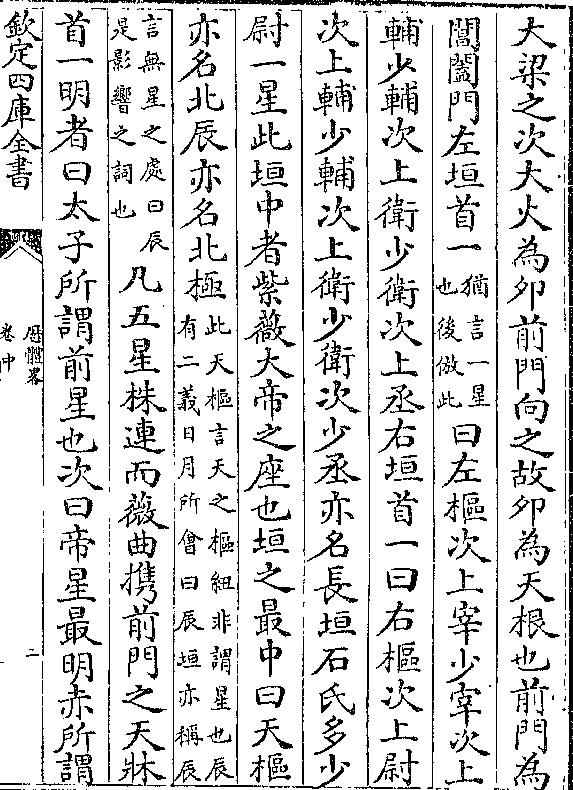 大梁之次大火為卯前門向之故卯為天根也前門為
閶闔門左垣首一猶言一星也後倣此曰左樞次上宰少宰次上
輔少輔次上衛少衛次上丞右垣首一曰右樞次上尉
次上輔少輔次上衛少衛次少丞亦名長垣石氏多少
尉一星此垣中者紫薇大帝之座也垣之最中曰天樞
亦名北辰亦名北極此天樞言天之樞紐非謂星也辰有二義日月所㑹曰辰垣亦稱辰
言無星之處曰辰是影響之詞也凡五星株連而薇曲携前門之天牀
首一明者曰太子所謂前星也次曰帝星最明赤所謂
欽定四庫全書
厯體畧
卷中
二